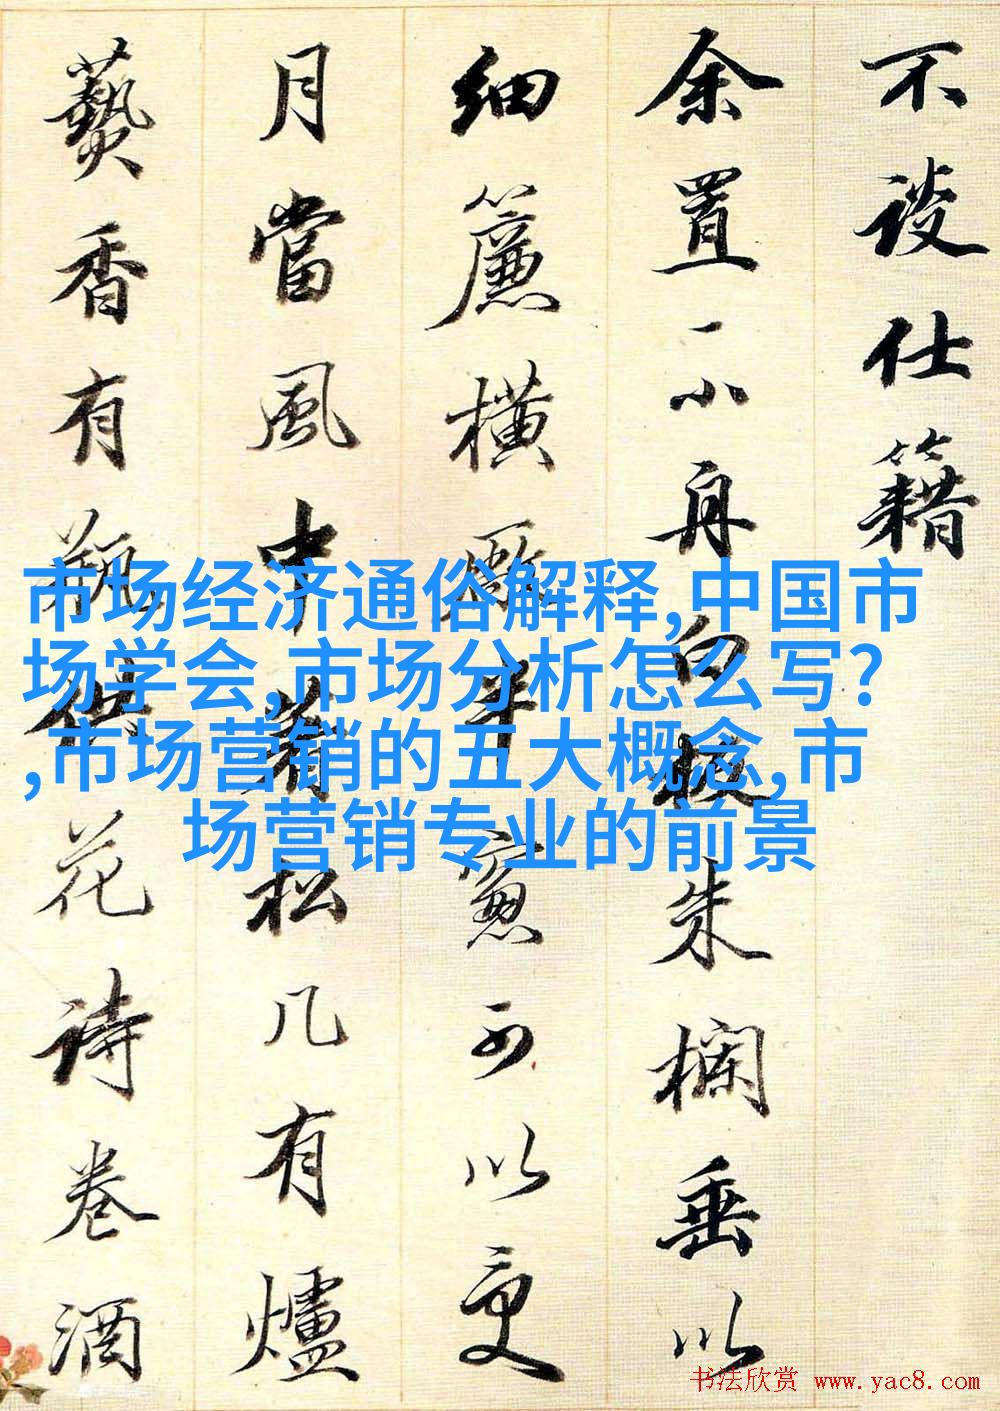 不談仕籍
余置一小舟白板朱欄垂以
細簾橫半窓可以更
月當風中着松几有爐
爇香有瓶供花詩卷酒
市场经济通俗解释,中国市
场学会,市场分析怎么写?
,市场营销的五大概念,市
场营销专业的前景
书法欣赏 www.yac8.com